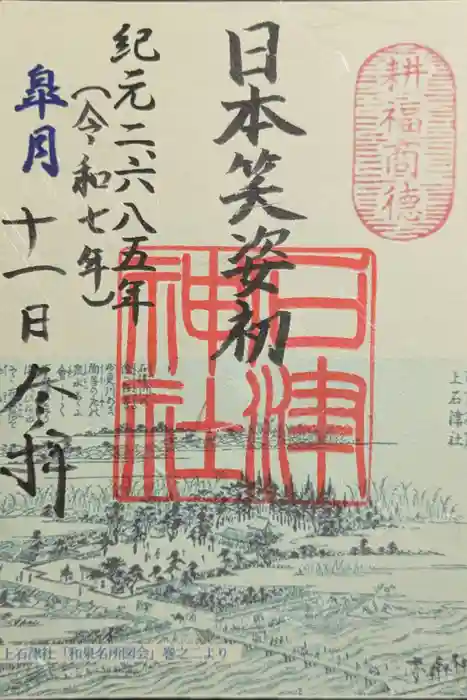 耕福商徳
日本笑姿初
紀元二六八五年
(令和七年)
皐月
十一日参拝
石津神社
上石津社
上石津社「和泉名所図会」巻之一より